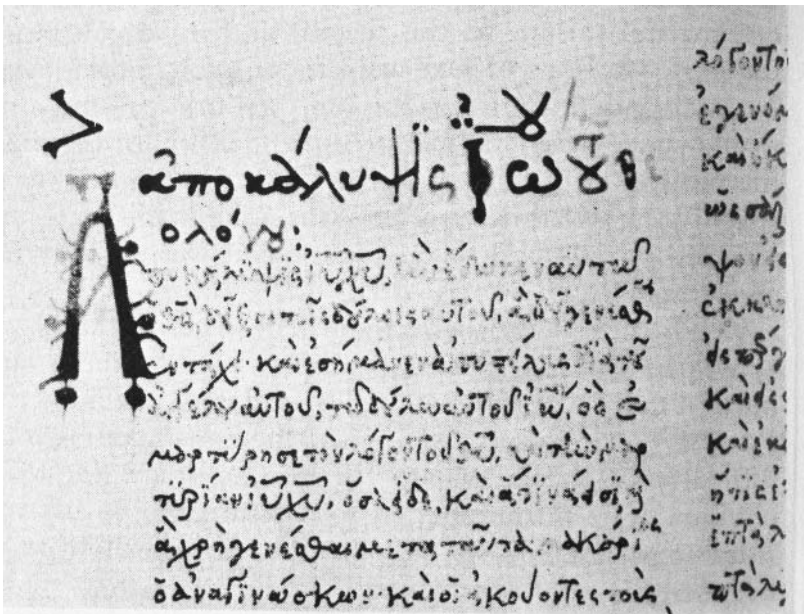 ἀποκάλυψϊς ϊω τοῦ θε
ολόγου:
Ἀποκάλυψϊς ιυ χυ, ἣν ἔδωκεν αὐτῶ
ὁ θς, δεῖξαι τοῖς δούλοις αὐτοῦ, ἃ δεῖ γενέσθαι
ἐν τάχει· καὶ ἐσήμανεν ἀποστείλας διὰ τοῦ
ἀγγέλου αὐτοῦ, τῶ δούλω αὐτοῦ ϊω, ὃς ἐ
μαρτύρησε τὸν λόγον τοῦ θυ, καὶ τὴν μαρ
τυρίαν ιυ χυ, ὅσα εἶδε, καὶ ἅτινα εἰσὶ, καὶ
ἃ χρὴ γενέσθαι μετὰ ταῦτα, μακάριος
ὁ ἀναγινώσκων καὶ οἱ ἀκούοντες τοὺς
λόγον τοῦ
ἐγενόμ
ἐκκλη
ἑπτὰ λ